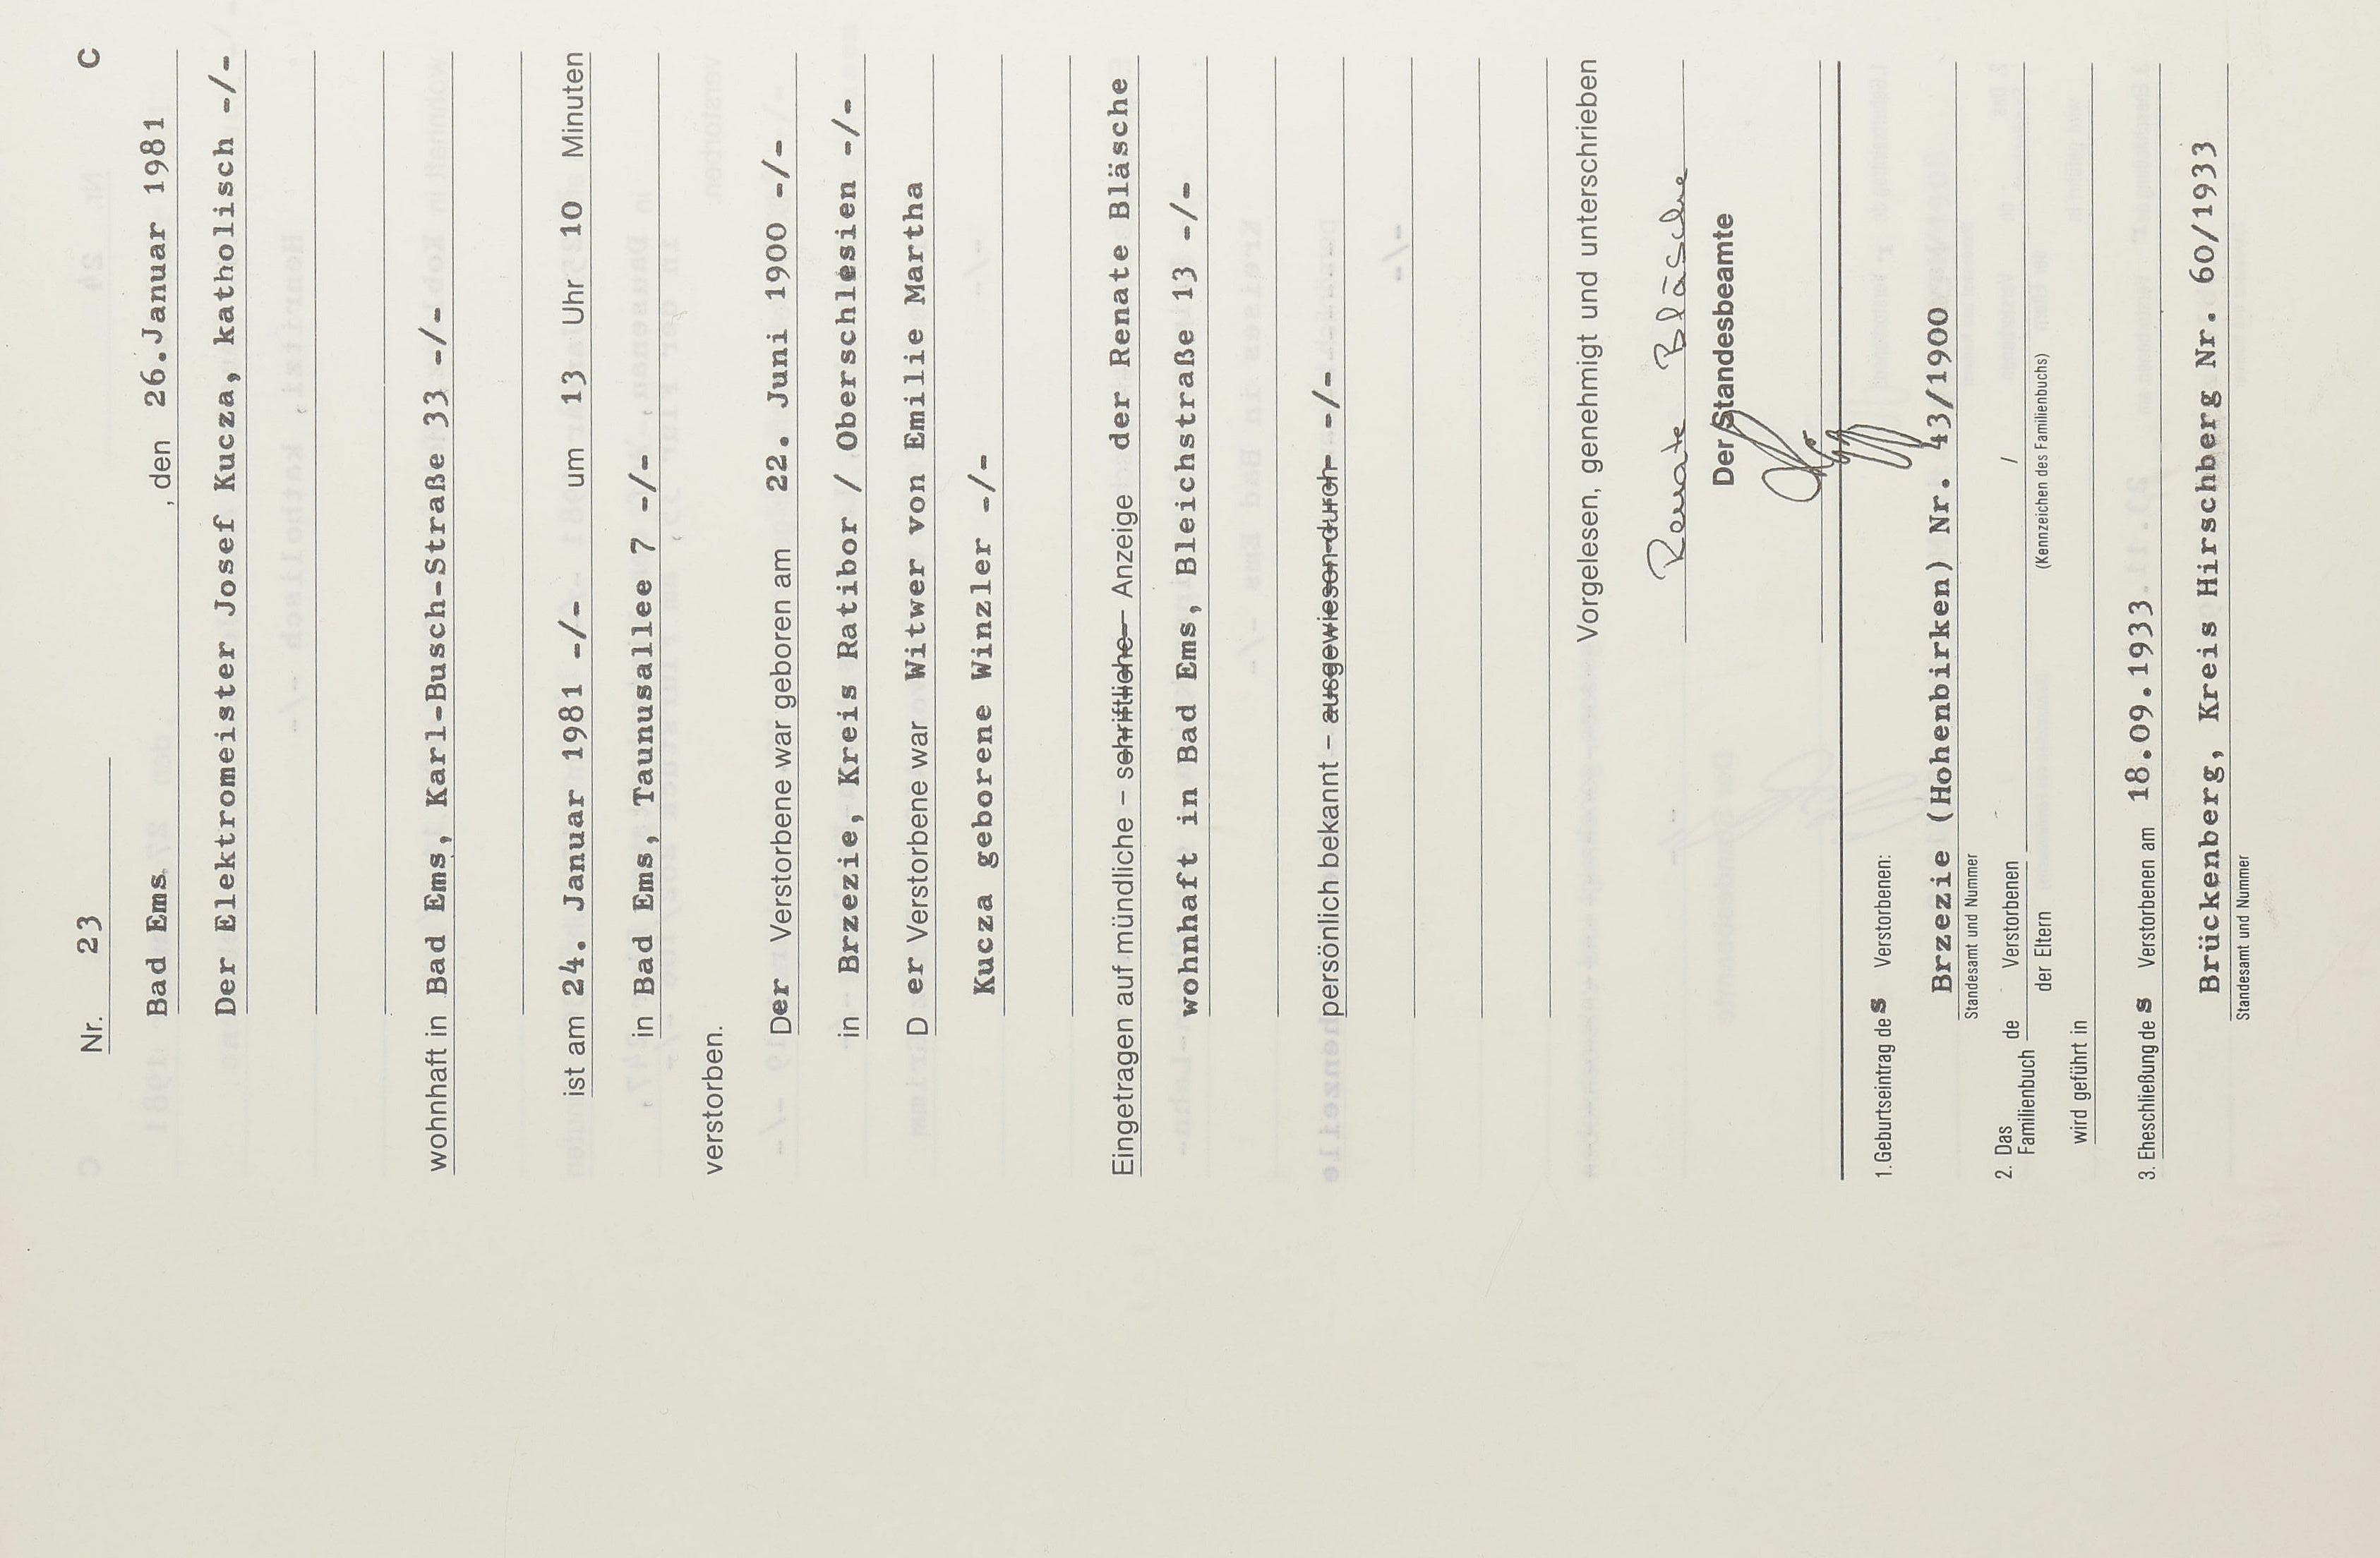 Nr. 23 C
Bad Ems, den 26.Januar 1981
Der Elektromeister Josef Kucza, katholisch -/-
wohnhaft in Bad Ems, Karl-Busch-Straße 33 -/-
ist am 24. Januar 1981 -/- um 13 Uhr 10 Minuten
in Bad Ems, Taunusallee 7 -/-
verstorben.
Der Verstorbene war geboren am 22. Juni 1900 -/-
in Brzezie, Kreis Ratibor / Oberschlesien -/-
D er Verstorbene war Witwer von Emilie Martha
Kucza geborene Winzler -/-
Eingetragen auf mündliche – schriftliche – Anzeige der Renate Bläsche
wohnhaft in Bad Ems, Bleichstraße 13 -/-
persönlich bekannt – ausgewiesen durch -/-
Vorgelesen, genehmigt und unterschrieben
Renate Bläsche
Der Standesbeamte
1. Geburtseintrag des Verstorbenen:
Brzezie (Hohenbirken) Nr. 43/1900
Standesamt und Nummer
2. Das Familienbuch de Verstorbenen /
der Eltern (Kennzeichen des Familienbuchs)
wird geführt in
3. Eheschließung des Verstorbenen am 18.09.1933
Brückenberg, Kreis Hirschberg Nr. 60/1933
Standesamt und Nummer